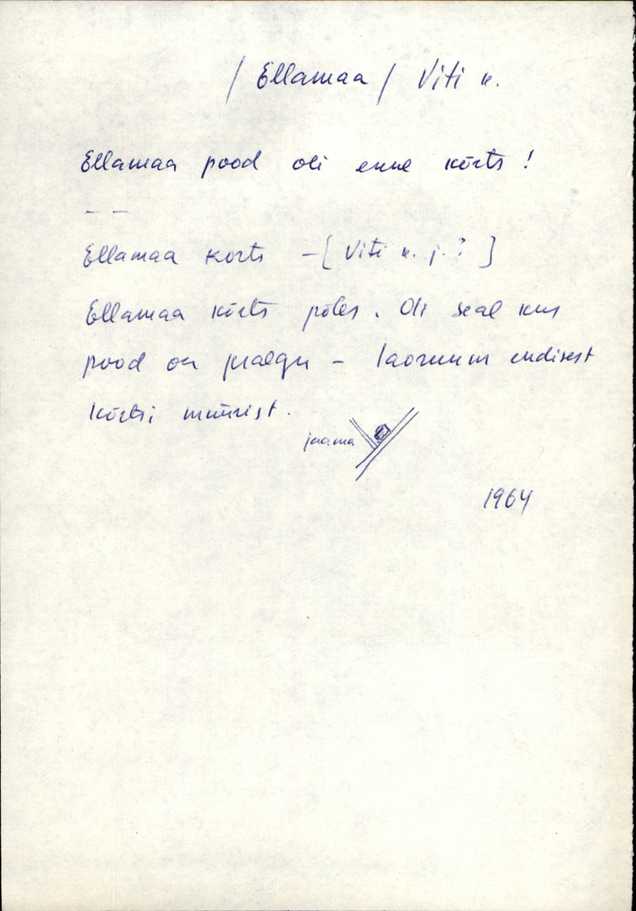 / Ellamaa / Viti k.
Ellamaa pood oli enne kõrts!
- -
Ellamaa kõrts - [Viti k. j.?]
Ellamaa kõrts põles. Oli seal kus
pood on praegu - laoruum endisest
kõrtsi müürist.
jaama
1964